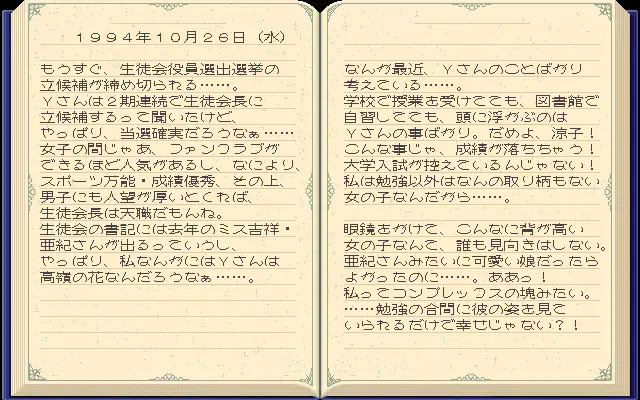 1994年10月26日（水）
もうすぐ、生徒会役員選出選挙の
立候補が締め切られる……。
Yさんは2期連続で生徒会長に
立候補するって聞いたけど、
やっぱり、当選確実だろうなぁ……
女子の間じゃあ、ファンクラブが
できるほど人気があるし、なにより、
スポーツ万能・成績優秀、その上、
男子にも人望が厚いとくれば、
生徒会長は天職だもんね。
生徒会の書記には去年のミス吉祥・
亜紀さんが出るっていうし、
やっぱり、私なんかにはYさんは
高嶺の花なんだろうなぁ……。
なんか最近、Yさんのことばかり
考えている……。
学校で授業を受けてても、図書館で
自習してても、頭に浮かぶのは
Yさんの事ばかり。だめよ、涼子！
こんな事じゃ、成績が落ちちゃう！
大学入試が控えているんじゃない！
私は勉強以外はなんの取り柄もない
女の子なんだから……。
眼鏡をかけて、こんなに背が高い
女の子なんて、誰も見向きはしない。
亜紀さんみたいに可愛い娘だったら
よかったのに……。ああっ！
私ってコンプレックスの塊みたい。
……勉強の合間に彼の姿を見て
いられるだけで幸せじゃない？！